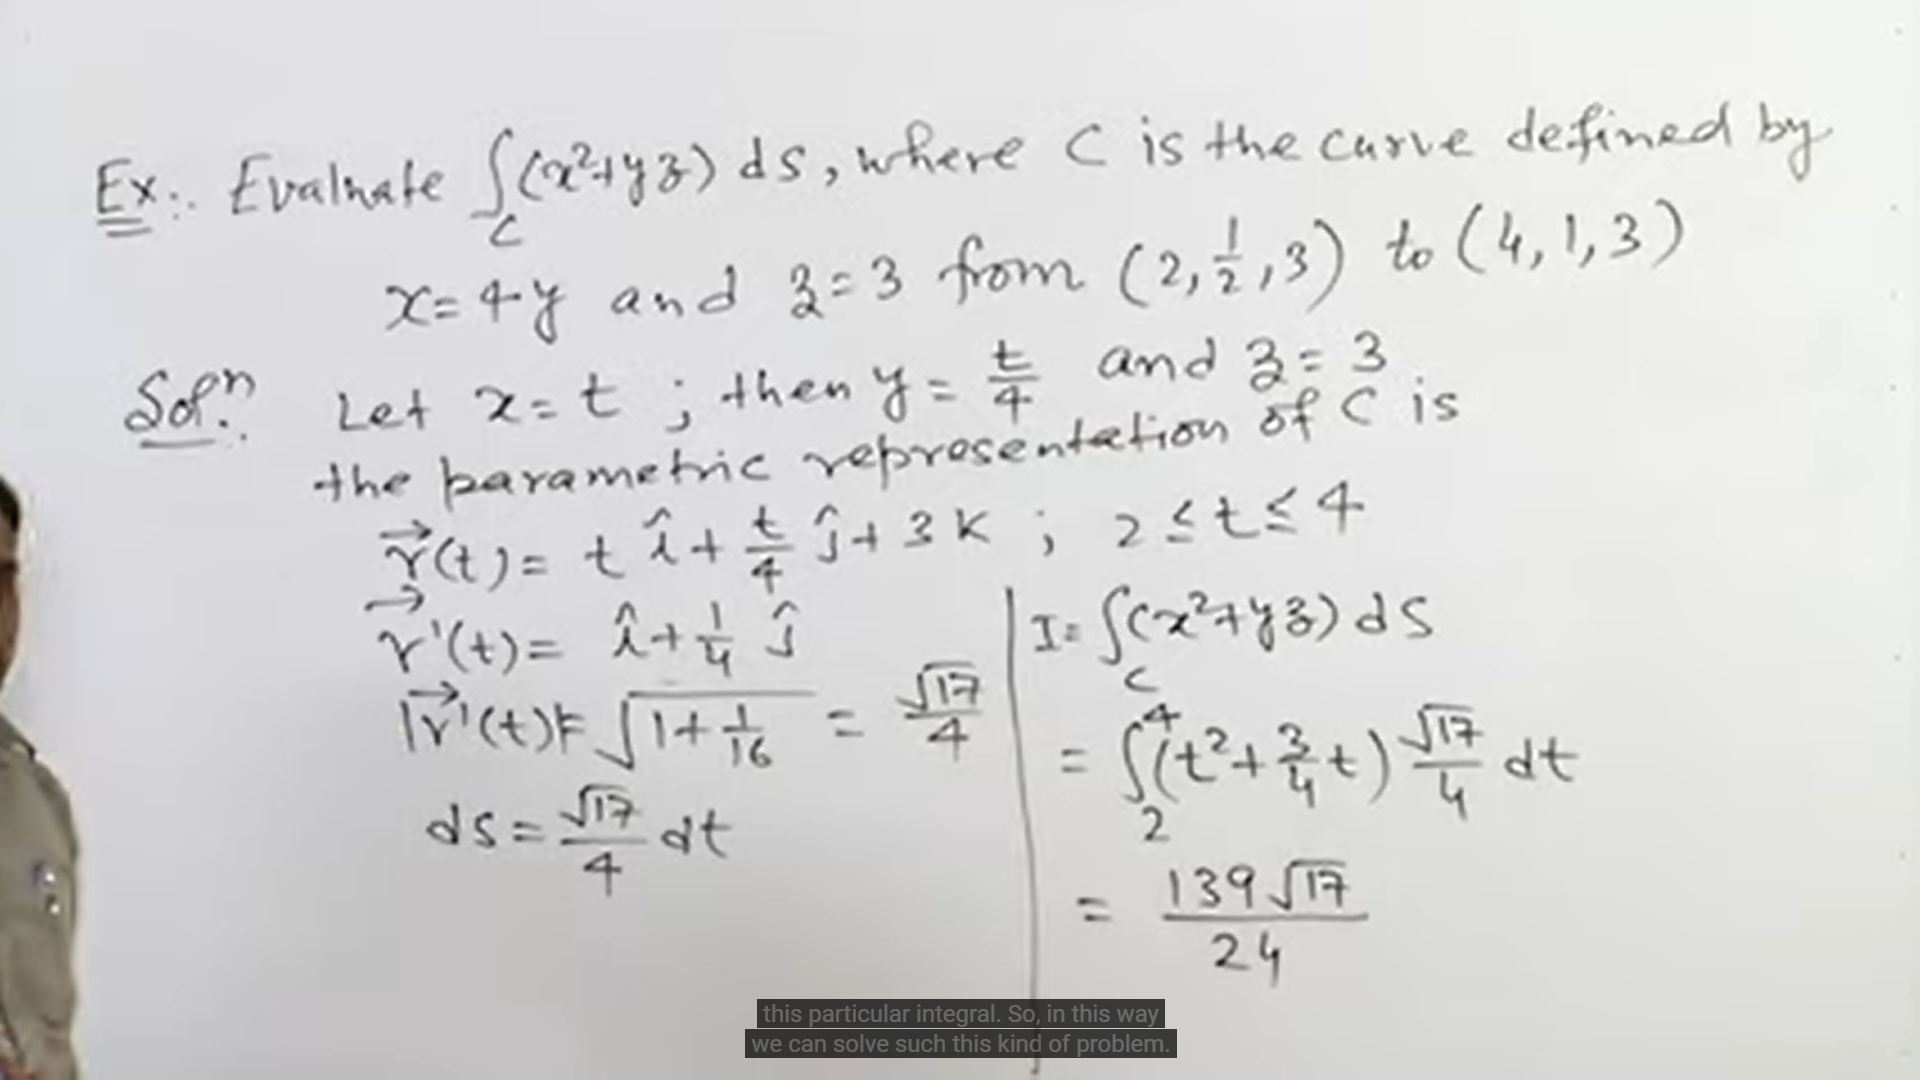 Ex:. Evaluate ∫_C (x²+yz) ds, where C is the curve defined by
x=4y and z=3 from (2, 1/2, 3) to (4, 1, 3)
Solⁿ:. Let x=t ; then y = t/4 and z=3
the parametric representation of C is
r⃗(t) = t î + t/4 ĵ + 3k ; 2 ≤ t ≤ 4
r⃗'(t) = î + 1/4 ĵ
|r⃗'(t)| = √(1+1/16) = √17/4
ds = √17/4 dt
I = ∫_C (x²+yz) ds
= ∫_2^4 (t² + 3/4 t) √17/4 dt
= 139√17/24
this particular integral. So, in this way
we can solve such this kind of problem.